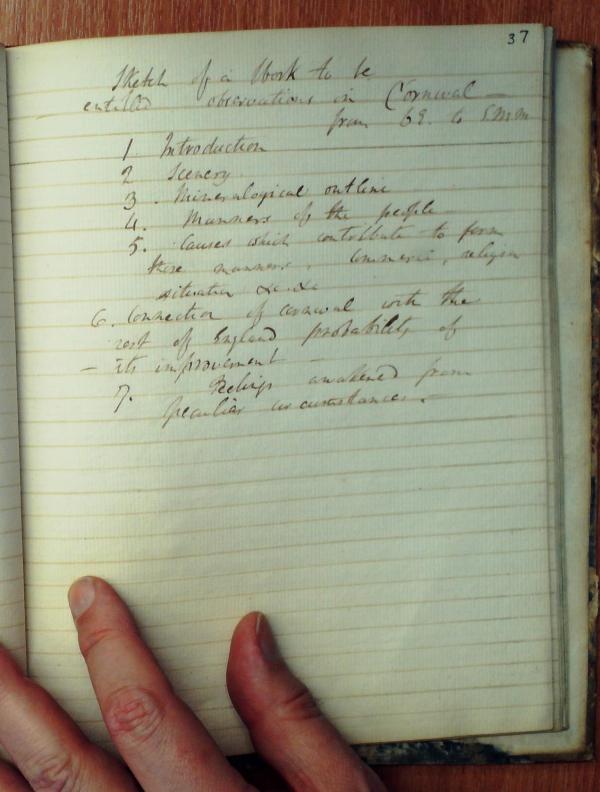 37
Sketch of a Work to be
entitled observations in Cornwal —
from 62. to
1 Introduction
2 Scenery
3. Mineralogical outline
4. Manners of the people
5. Causes which contribute to form
these manners. Commerce, religion
situation &c. &c
6. Connection of cornwal with the
rest of England probability of
– its improvement –
7. Feelings awakened from
peculiar circumstances. –